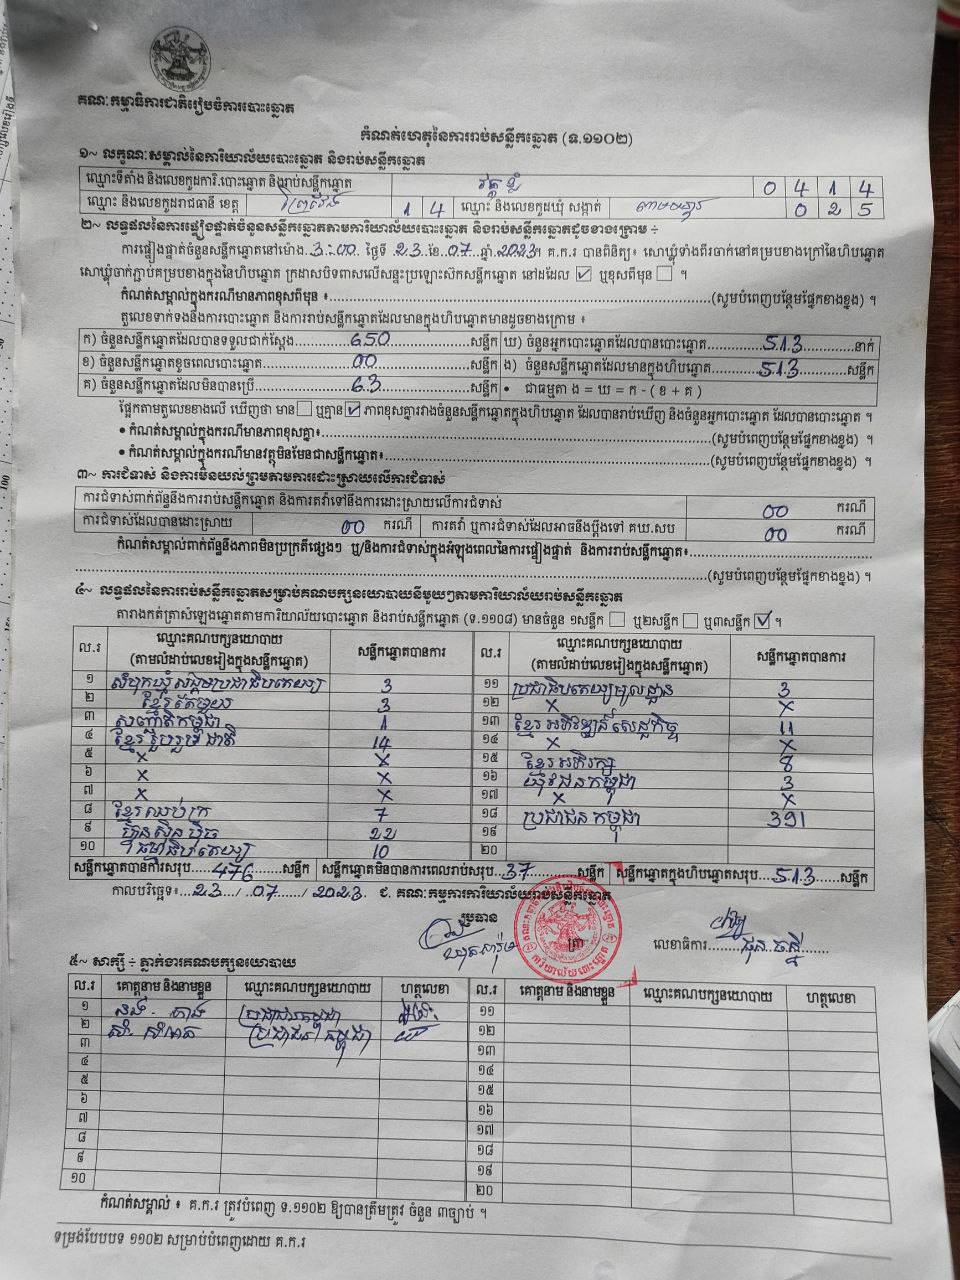 គណៈកម្មាធិការជាតិរៀបចំការបោះឆ្នោត
កំណត់ហេតុនៃការរាប់សន្លឹកឆ្នោត (ទ.១១០២)
១~ លក្ខណៈសម្គាល់នៃការិយាល័យបោះឆ្នោត និងរាប់សន្លឹកឆ្នោត
ឈ្មោះទីតាំង និងលេខកូដការិ.បោះឆ្នោត និងរាប់សន្លឹកឆ្នោត 0 4 1 4
ឈ្មោះ និងលេខកូដរាជធានី ខេត្ត ព្រៃវែង 1 4 ឈ្មោះ និងលេខកូដឃុំ សង្កាត់ 0 2 5
២~ លទ្ធផលនៃការផ្ទៀងផ្ទាត់ចំនួនសន្លឹកឆ្នោតតាមការិយាល័យបោះឆ្នោត និងរាប់សន្លឹកឆ្នោតដូចខាងក្រោម ÷
ការផ្ទៀងផ្ទាត់ចំនួនសន្លឹកឆ្នោតនៅម៉ោង 3:00 ថ្ងៃទី 23 ខែ 07 ឆ្នាំ 2023។ គ.ក.រ បានពិនិត្យ៖ សោឃ្លុំទាំងពីរចាក់នៅគម្របខាងក្រៅនៃហិបឆ្នោត
សោឃ្លុំចាក់ភ្ជាប់គម្របខាងក្នុងនៃហិបឆ្នោត ក្រដាសបិទពាសលើសន្ទះប្រឡោះស៊កសន្លឹកឆ្នោត នៅដដែល ✓ ឬខុសពីមុន ។
កំណត់សម្គាល់ក្នុងករណីមានភាពខុសពីមុន ៖ (សូមបំពេញបន្ថែមផ្នែកខាងខ្នង) ។
តួលេខទាក់ទងនឹងការបោះឆ្នោត និងការរាប់សន្លឹកឆ្នោតដែលមានក្នុងហិបឆ្នោតមានដូចខាងក្រោម ៖
ក) ចំនួនសន្លឹកឆ្នោតដែលបានទទួលជាក់ស្តែង 650 សន្លឹក ឃ) ចំនួនអ្នកបោះឆ្នោតដែលបានបោះឆ្នោត 513 នាក់
ខ) ចំនួនសន្លឹកឆ្នោតខូចពេលបោះឆ្នោត 00 សន្លឹក ង) ចំនួនសន្លឹកឆ្នោតដែលមានក្នុងហិបឆ្នោត 513 សន្លឹក
គ) ចំនួនសន្លឹកឆ្នោតដែលមិនបានប្រើ 63 សន្លឹក • ជាធម្មតា ង = ឃ = ក - ( ខ + គ )
ផ្អែកតាមតួលេខខាងលើ ឃើញថា មាន ឬគ្មាន ✓ ភាពខុសគ្នារវាងចំនួនសន្លឹកឆ្នោតក្នុងហិបឆ្នោត ដែលបានរាប់ឃើញ និងចំនួនអ្នកបោះឆ្នោត ដែលបានបោះឆ្នោត ។
• កំណត់សម្គាល់ក្នុងករណីមានភាពខុសគ្នា៖ (សូមបំពេញបន្ថែមផ្នែកខាងខ្នង) ។
• កំណត់សម្គាល់ក្នុងករណីមានវត្ថុមិនមែនជាសន្លឹកឆ្នោត៖ (សូមបំពេញបន្ថែមផ្នែកខាងខ្នង) ។
៣~ ការជំទាស់ និងការមិនយល់ព្រមតាមការដោះស្រាយលើការជំទាស់
ការជំទាស់ពាក់ព័ន្ធនឹងការរាប់សន្លឹកឆ្នោត និងការតវ៉ាទៅនឹងការដោះស្រាយលើការជំទាស់ 00 ករណី
ការជំទាស់ដែលបានដោះស្រាយ 00 ករណី ការតវ៉ា ឬការជំទាស់ដែលអាចនឹងប្តឹងទៅ គឃ.សប 00 ករណី
កំណត់សម្គាល់ពាក់ព័ន្ធនឹងភាពមិនប្រក្រតីផ្សេងៗ ឬ/និងការជំទាស់ក្នុងអំឡុងពេលនៃការផ្ទៀងផ្ទាត់ និងការរាប់សន្លឹកឆ្នោត៖
(សូមបំពេញបន្ថែមផ្នែកខាងខ្នង) ។
៤~ លទ្ធផលនៃការរាប់សន្លឹកឆ្នោតសម្រាប់គណបក្សនយោបាយនីមួយៗតាមការិយាល័យរាប់សន្លឹកឆ្នោត
តារាងកត់ត្រាសំឡេងឆ្នោតតាមការិយាល័យបោះឆ្នោត និងរាប់សន្លឹកឆ្នោត (ទ.១១០៨) មានចំនួន ១សន្លឹក ឬ២សន្លឹក ឬ៣សន្លឹក ✓ ។
ល.រ ឈ្មោះគណបក្សនយោបាយ (តាមលំដាប់លេខរៀងក្នុងសន្លឹកឆ្នោត) សន្លឹកឆ្នោតបានការ ល.រ ឈ្មោះគណបក្សនយោបាយ (តាមលំដាប់លេខរៀងក្នុងសន្លឹកឆ្នោត) សន្លឹកឆ្នោតបានការ
១ សំបុកឃ្មុំសង្គមប្រជាធិបតេយ្យ 3 ១១ ប្រជាធិបតេយ្យមូលដ្ឋាន 3
២ ខ្មែរតែមួយ 3 ១២ X X
៣ សញ្ជាតិកម្ពុជា 1 ១៣ ខ្មែរអភិវឌ្ឍន៍សេដ្ឋកិច្ច 11
៤ ខ្មែររួបរួមជាតិ 14 ១៤ X X
៥ X X ១៥ ខ្មែរអភិរក្ស 8
៦ X X ១៦ យុវជនកម្ពុជា 3
៧ X X ១៧ X X
៨ ខ្មែរឈប់ក្រ 7 ១៨ ប្រជាជនកម្ពុជា 391
៩ ហ្វ៊ុនស៊ិនប៉ិច 22 ១៩
១០ ធម្មាធិបតេយ្យ 10 ២០
សន្លឹកឆ្នោតបានការសរុប 476 សន្លឹក សន្លឹកឆ្នោតមិនបានការពេលរាប់សរុប 37 សន្លឹក សន្លឹកឆ្នោតក្នុងហិបឆ្នោតសរុប 513 សន្លឹក
កាលបរិច្ឆេទ៖ 23 / 07 / 2023 ជ. គណៈកម្មការការិយាល័យរាប់សន្លឹកឆ្នោត
ប្រធាន ត្រា លេខាធិការ
៥~ សាក្សី ÷ ភ្នាក់ងារគណបក្សនយោបាយ
ល.រ គោត្តនាម និងនាមខ្លួន ឈ្មោះគណបក្សនយោបាយ ហត្ថលេខា ល.រ គោត្តនាម និងនាមខ្លួន ឈ្មោះគណបក្សនយោបាយ ហត្ថលេខា
១ ប្រជាជនកម្ពុជា ១១
២ ប្រជាជនកម្ពុជា ១២
៣ ១៣
៤ ១៤
៥ ១៥
៦ ១៦
៧ ១៧
៨ ១៨
៩ ១៩
១០ ២០
កំណត់សម្គាល់ ៖ គ.ក.រ ត្រូវបំពេញ ទ.១១០២ ឱ្យបានត្រឹមត្រូវ ចំនួន ៣ច្បាប់ ។
ទម្រង់បែបបទ ១១០២ សម្រាប់បំពេញដោយ គ.ក.រ